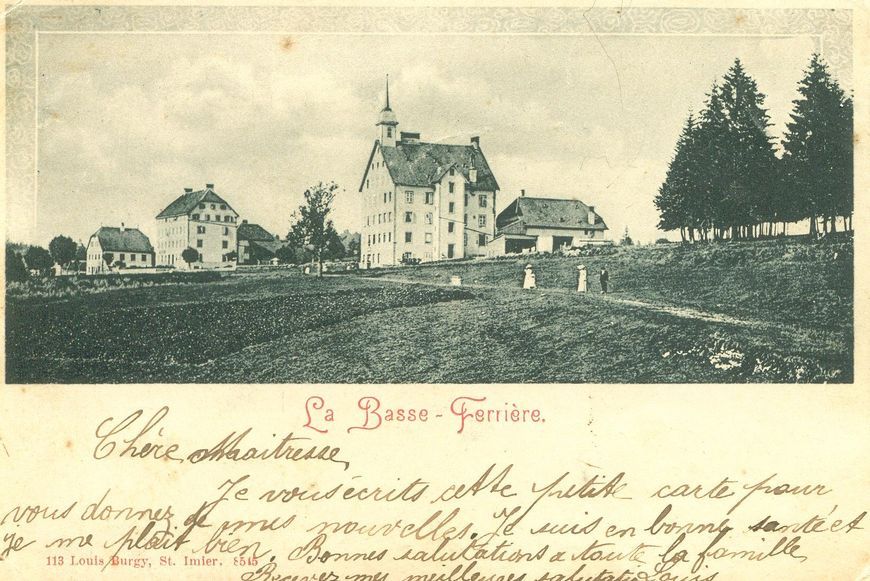 La Basse-Ferrière.
Chère Maitresse
Je vous écrits cette petite carte pour
vous donnez de mes nouvelles. Je suis en bonne santé et
je me plait bien. Bonnes salutations a toute la famille
113 Louis Burgy, St. Imier. 8545
Recevez mes meilleures salutations Louis